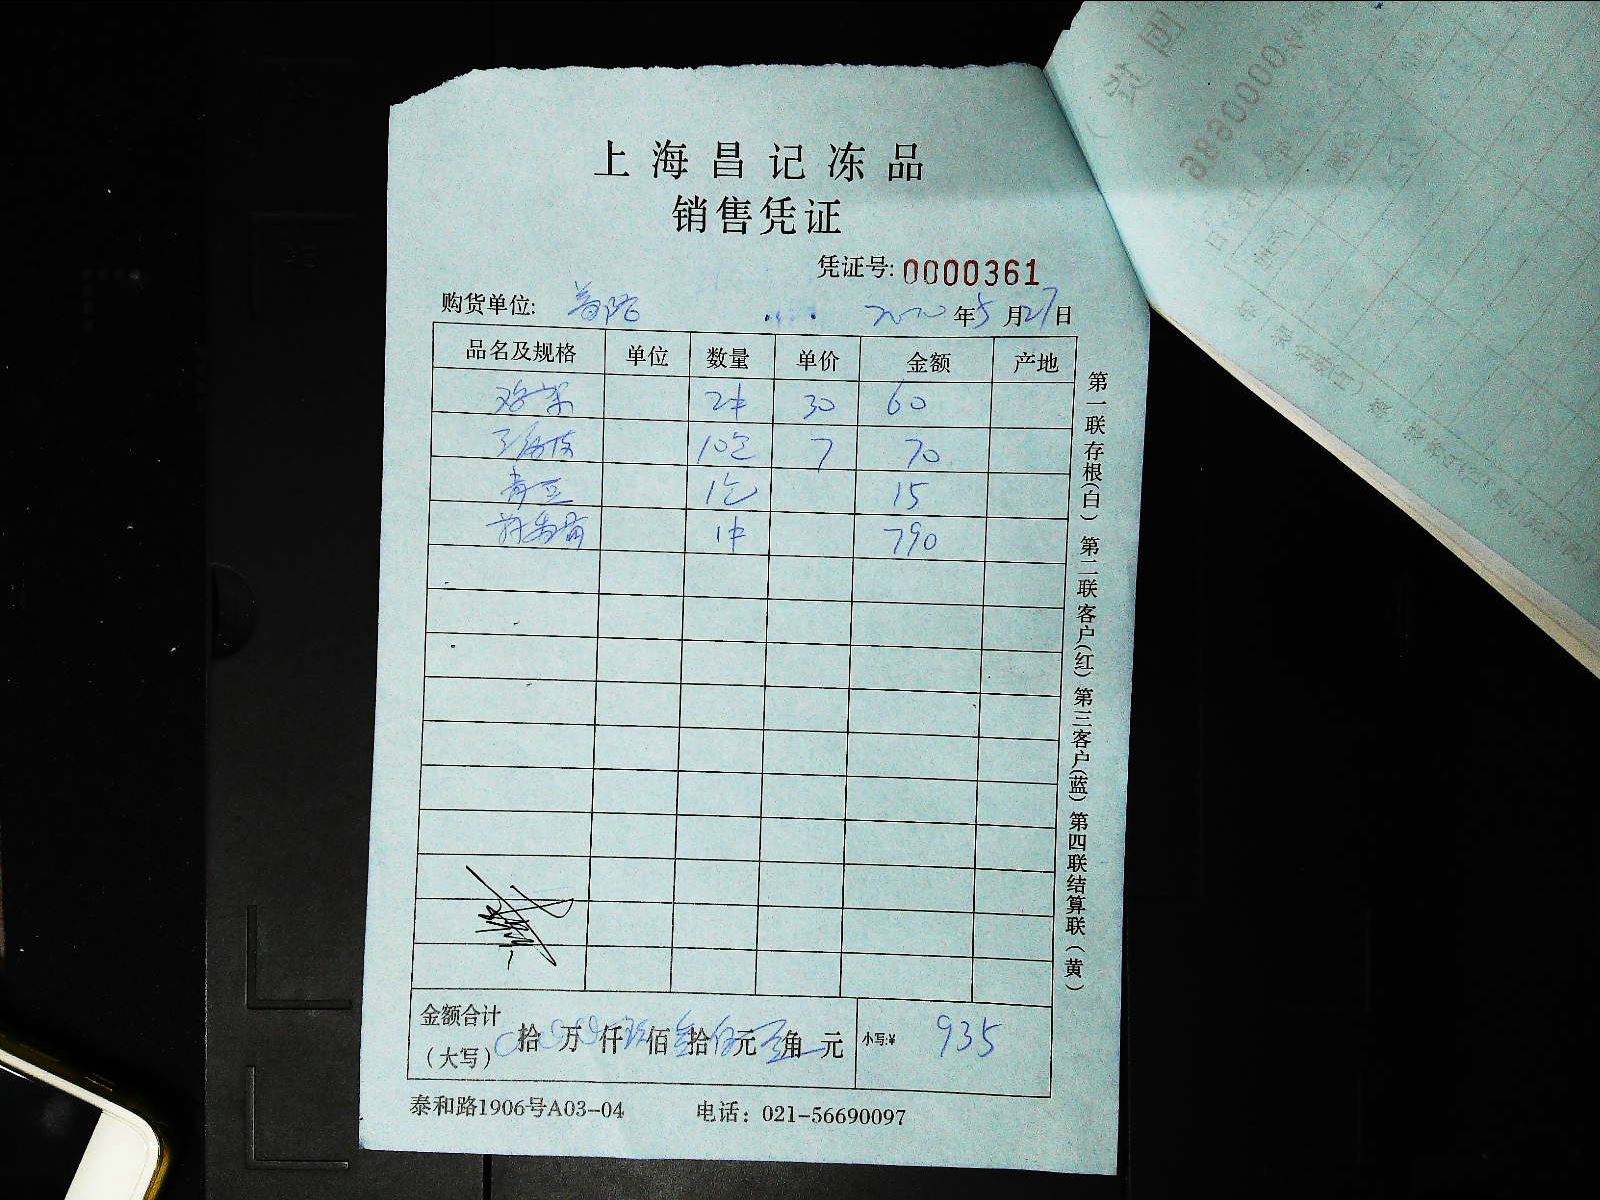 上海昌记冻品
销售凭证
凭证号: 0000361
购货单位: 2020年5月27日
品名及规格 单位 数量 单价 金额 产地
鸡架 2件 30 60
10包 7 70
青豆 1包 15
1件 790
金额合计
（大写） 拾 万 仟 玖佰叁拾伍元 角 元 小写:¥ 935
泰和路1906号A03-04 电话: 021-56690097
第一联存根(白) 第二联客户(红) 第三客户(蓝) 第四联结算联(黄)
0000686